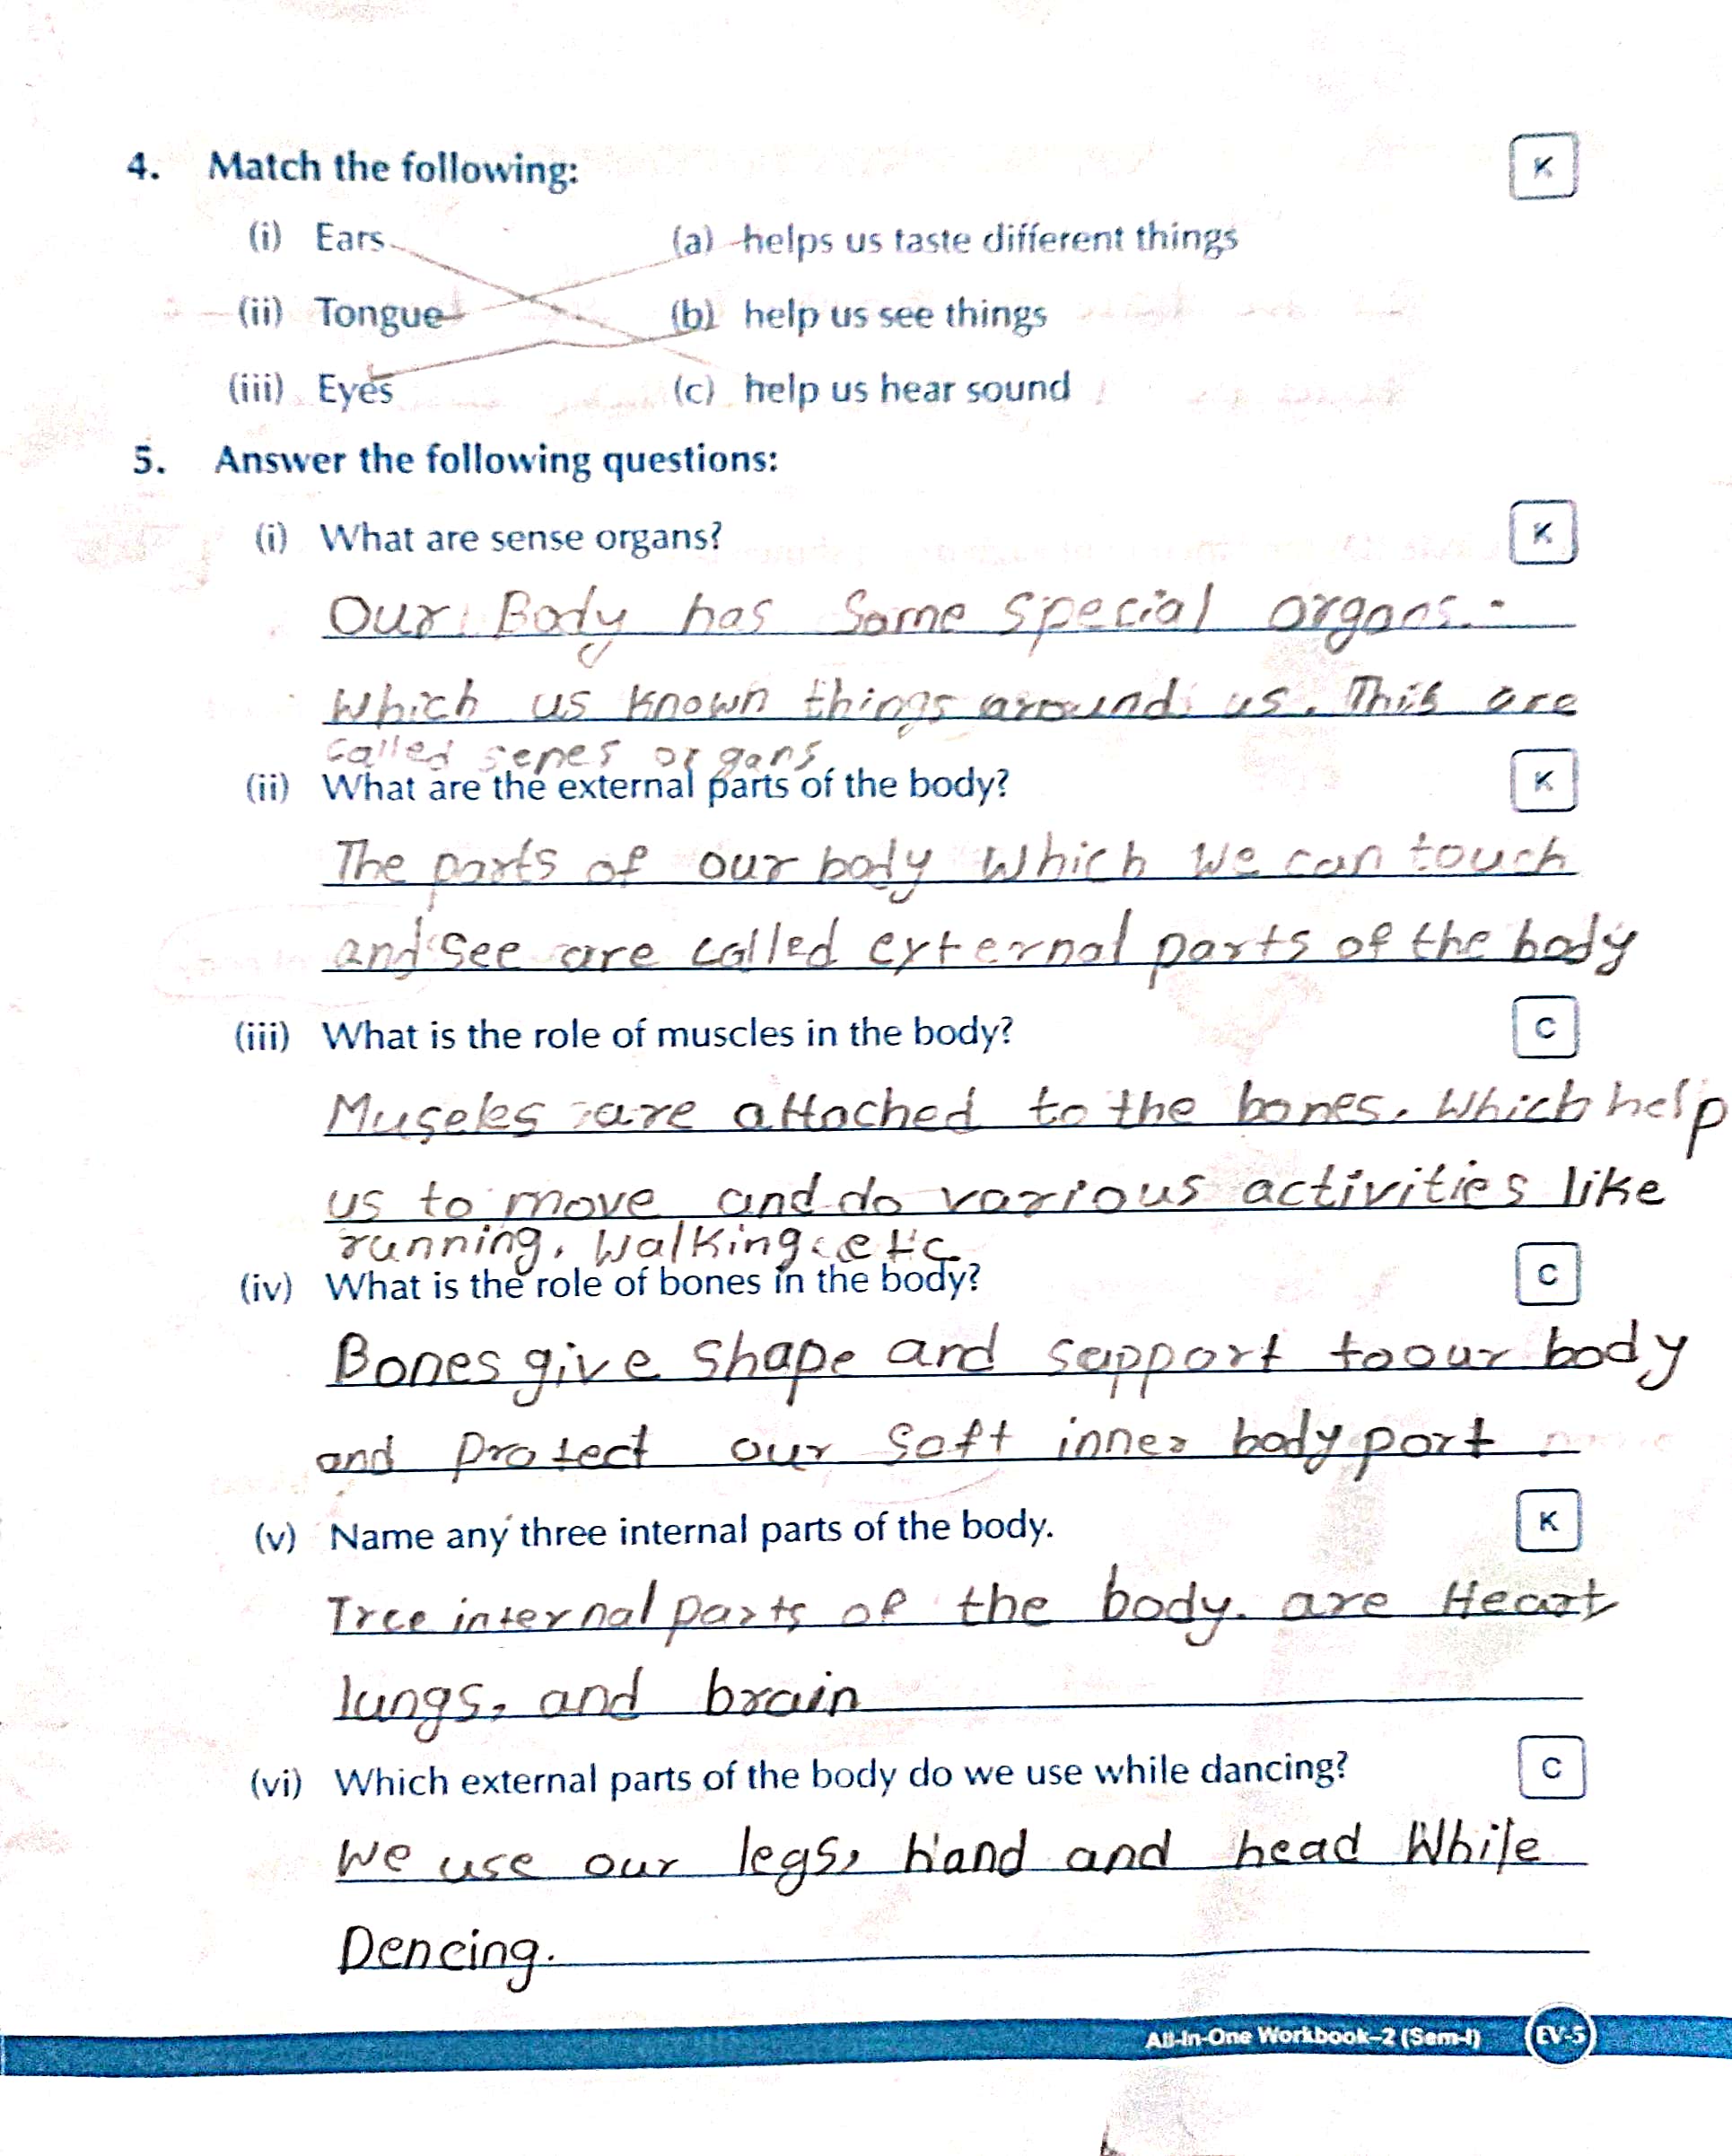 4. Match the following: K
(i) Ears (a) helps us taste different things
(ii) Tongue (b) help us see things
(iii) Eyes (c) help us hear sound
5. Answer the following questions:
(i) What are sense organs? K
Our Body has Some Special organs.
Which us known things around us. This are
called senes organs
(ii) What are the external parts of the body? K
The parts of our body Which We can touch
and See are called external parts of the body
(iii) What is the role of muscles in the body? C
Museles are attached to the bones. Which help
us to move and do various activities like
running, Walking etc
(iv) What is the role of bones in the body? C
Bones give shape and sapport to our body
and Protect our Soft inner body part
(v) Name any three internal parts of the body. K
Tree internal parts of the body. are Heart
lungs, and brain
(vi) Which external parts of the body do we use while dancing? C
We use our legs, hand and head While
Dencing.
All-In-One Workbook–2 (Sem-I) EV-5